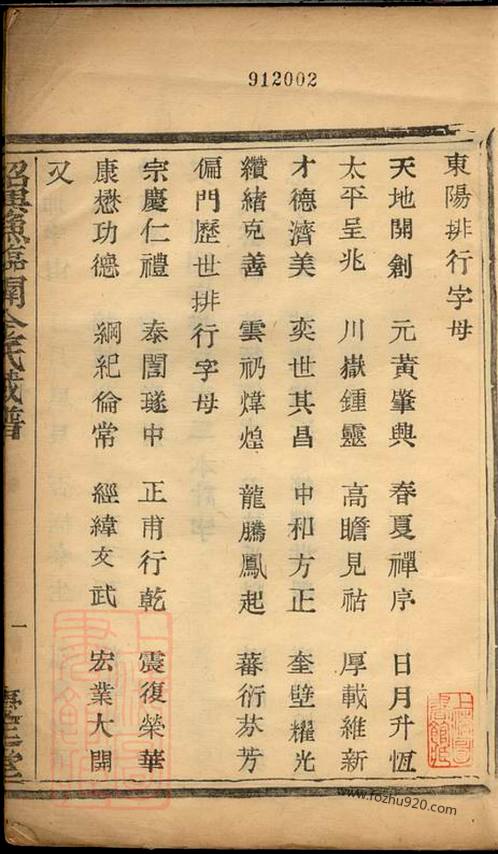 912002
東陽排行字母
天地開創 元黃肇興 春夏禪序 日月升恆
太平呈兆 川嶽鍾靈 高瞻見祜 厚載維新
才德濟美 奕世其昌 中和方正 奎壁耀光
纘緒克善 雲礽煒煌 龍騰鳳起 蕃衍芬芳
偏門歷世排行字母
宗慶仁禮 泰誾璲中 正甫行乾 震復榮華
康懋功德 綱紀倫常 經緯文武 宏業大開
又
一
www.fozhu920.com